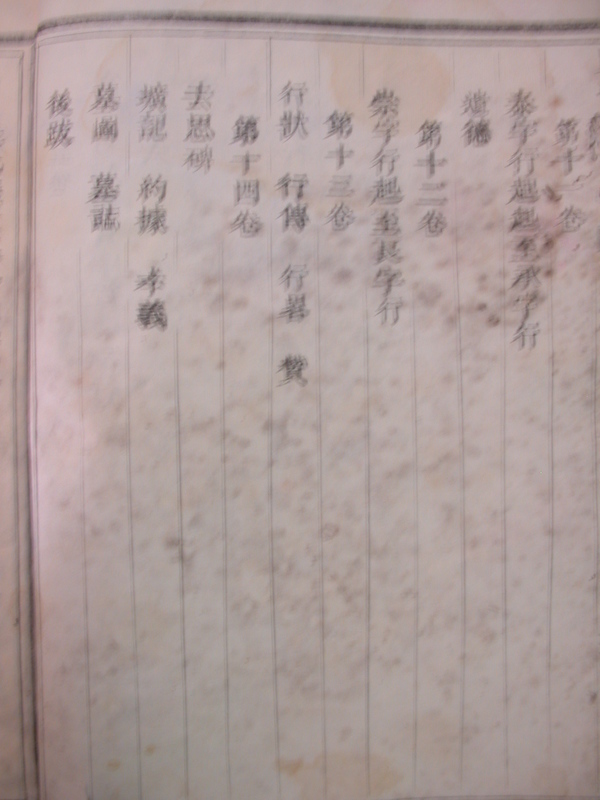 第十一卷
泰字行起至承字行
第十二卷
崇字行起至良字行
第十三卷
行狀 行傳 行畧 贊
第十四卷
去思碑
壙記 約據 孝義
墓圖 墓誌
後跋